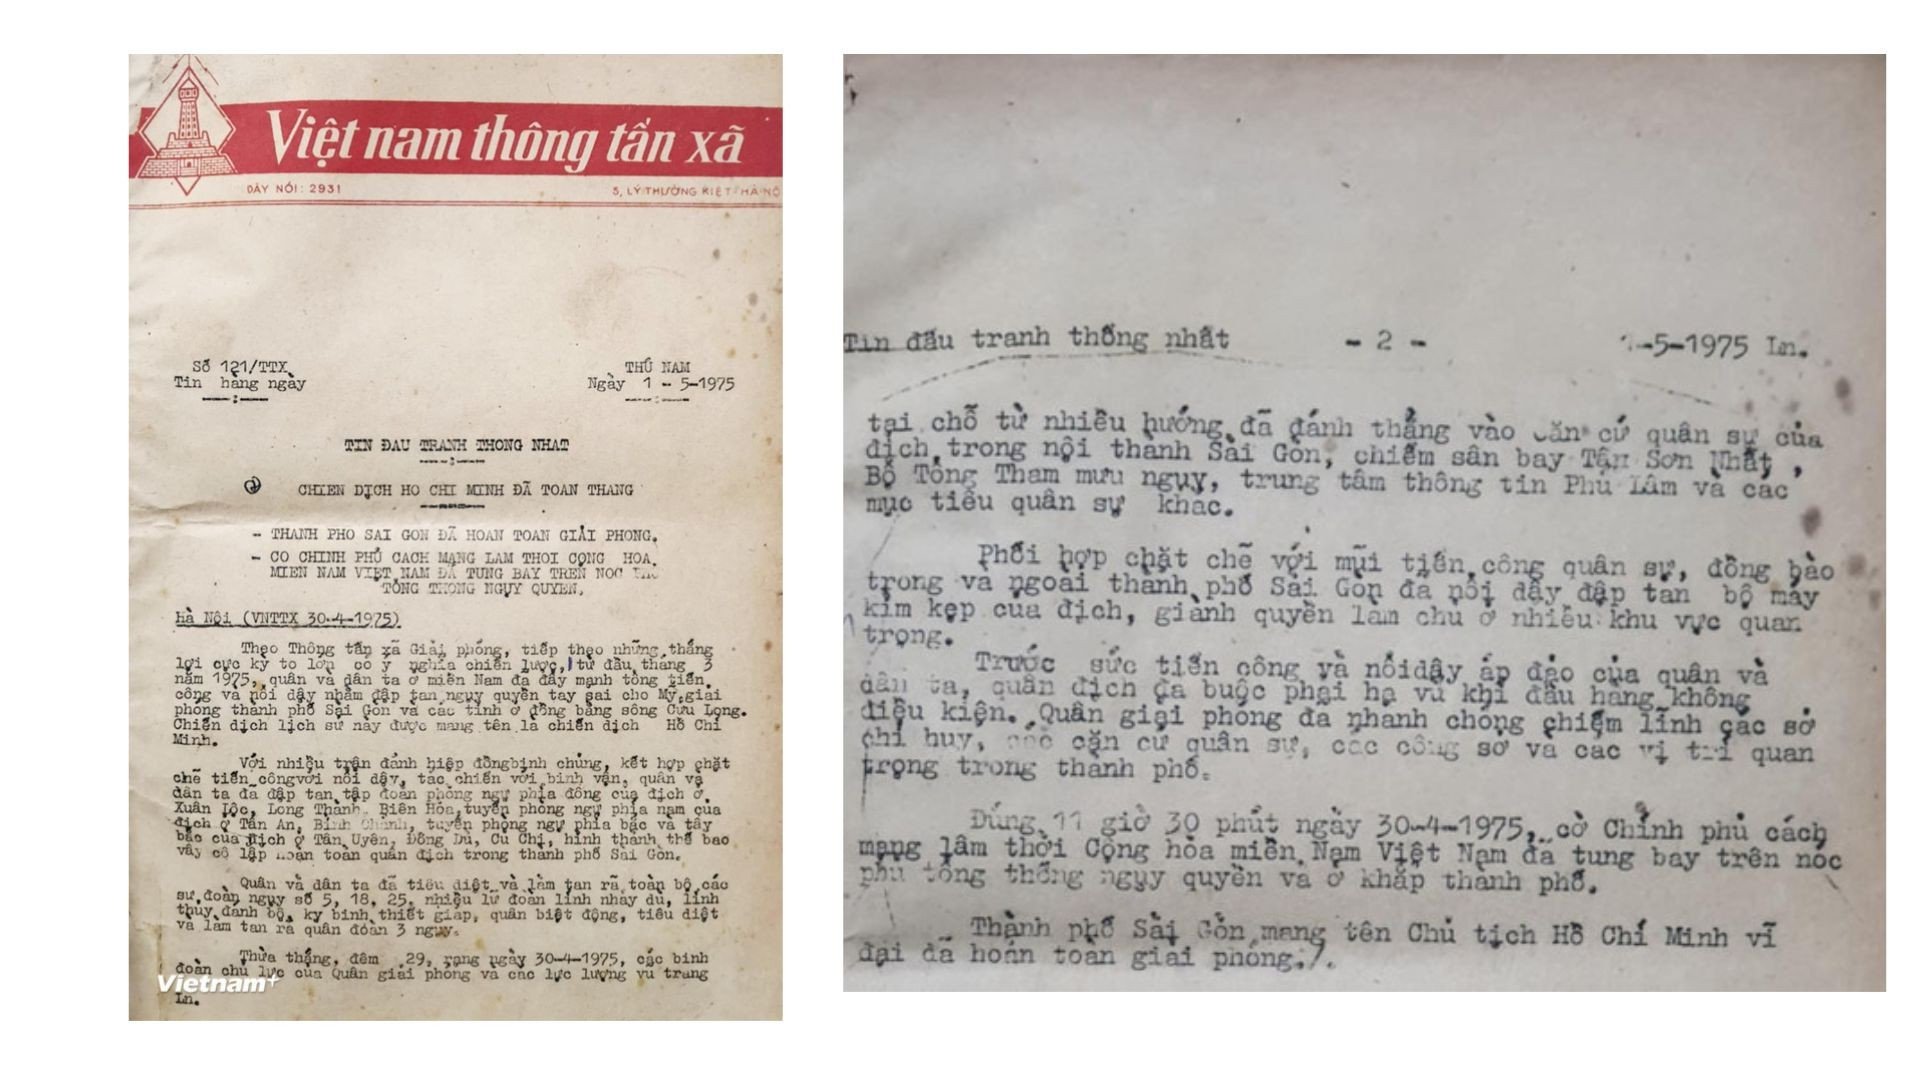 Việt nam thông tấn xã
DÂY NÓI: 2931
5, LÝ THƯỜNG KIỆT-HÀ-NỘ
Số 121/TTX
Tin hàng ngày
THỨ NAM
Ngày 1 - 5-1975
TIN ĐAU TRANH THONG NHAT
CHIEN DỊCH HO CHI MINH ĐÃ TOAN THANG
- THANH PHO SAI GON ĐÃ HOAN TOAN GIẢI PHONG.
- CO CHINH PHỦ CACH MẠNG LAM THOI CỌNG HOA
MIEN NAM VIỆT NAM ĐÃ TUNG BAY TREN NOC
TỔNG THONG NGỤY QUYEN.
Hà Nội (VNTTX 30-4-1975)
Theo Thông tấn xã Giải phóng, tiếp theo những thắng
lợi cực kỳ to lớn có ý nghĩa chiến lược, từ đầu tháng 3
năm 1975, quân và dân ta ở miền Nam đã đẩy mạnh tổng tiến
công và nổi dậy nhằm đập tan ngụy quyền tay sai cho Mỹ, giải
phóng thành phố Sài Gòn và các tỉnh ở đồng bằng sông Cửu Long.
Chiến dịch lịch sử này được mang tên là chiến dịch Hồ Chí
Minh.
Với nhiều trận đánh hiệp đồngbinh chủng, kết hợp chặt
chẽ tiến côngvới nổi dậy, tác chiến với binh vận, quân và
dân ta đã đập tan tập đoàn phòng ngự phía đông của địch ở
Xuân Lộc, Long Thành, Biên Hòa, tuyến phòng ngự phía nam của
địch ở Tân An, Bình Chánh, tuyến phòng ngự phía bắc và tây
bắc của địch ở Tân Uyên, Đồng Dù, Củ Chi, hình thành thế bao
vây cô lập hoàn toàn quân địch trong thành phố Sài Gòn.
Quân và dân ta đã tiêu diệt và làm tan rã toàn bộ các
sư đoàn ngụy số 5, 18, 25, nhiều lữ đoàn lính nhảy dù, lính
thủy đánh bộ, kỵ binh thiết giáp, quân biệt động, tiêu diệt
và làm tan rã quân đoàn 3 ngụy.
Thừa thắng, đêm 29, rạng ngày 30-4-1975, các binh
đoàn chủ lực của Quân giải phóng và các lực lượng vũ trang
Ln.
Vietnam+
Tin đấu tranh thống nhất - 2 - 1-5-1975 Ln.
tại chỗ từ nhiều hướng đã đánh thẳng vào căn cứ quân sự của
địch trong nội thành Sài Gòn, chiếm sân bay Tân Sơn Nhất,
Bộ Tổng Tham mưu ngụy, trung tâm thông tin Phú Lâm và các
mục tiêu quân sự khác.
Phối hợp chặt chẽ với mũi tiến công quân sự, đồng bào
trong và ngoài thành phố Sài Gòn đã nổi dậy đập tan bộ máy
kìm kẹp của địch, giành quyền làm chủ ở nhiều khu vực quan
trọng.
Trước sức tiến công và nổidậy áp đảo của quân và
dân ta, quân địch đã buộc phải hạ vũ khí đầu hàng không
điều kiện. Quân giải phóng đã nhanh chóng chiếm lĩnh các sở
chỉ huy, các căn cứ quân sự, các công sở và các vị trí quan
trọng trong thành phố.
Đúng 11 giờ 30 phút ngày 30-4-1975, cờ Chính phủ cách
mạng lâm thời Cộng hòa miền Nam Việt Nam đã tung bay trên nóc
phủ tổng thống ngụy quyền và ở khắp thành phố.
Thành phố Sài Gòn mang tên Chủ tịch Hồ Chí Minh vĩ
đại đã hoàn toàn giải phóng./.